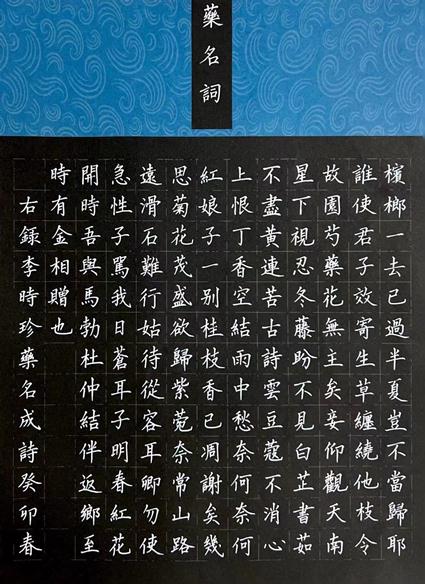 藥名詞
檳榔一去已過半夏豈不當歸耶
誰使君子效寄生草纏繞他枝令
故園芍藥花無主矣妾仰觀天南
星下視忍冬藤盼不見白芷書茹
不盡黃連苦古詩雲豆蔻不消心
上恨丁香空結雨中愁奈何奈何
紅娘子一別桂枝香已凋謝矣幾
思菊花茂盛欲歸紫菀奈常山路
遠滑石難行姑待從容耳卿勿使
急性子罵我曰蒼耳子明春紅花
開時吾與馬勃杜仲結伴返鄉至
時有金相贈也
右錄李時珍藥名成詩癸卯春